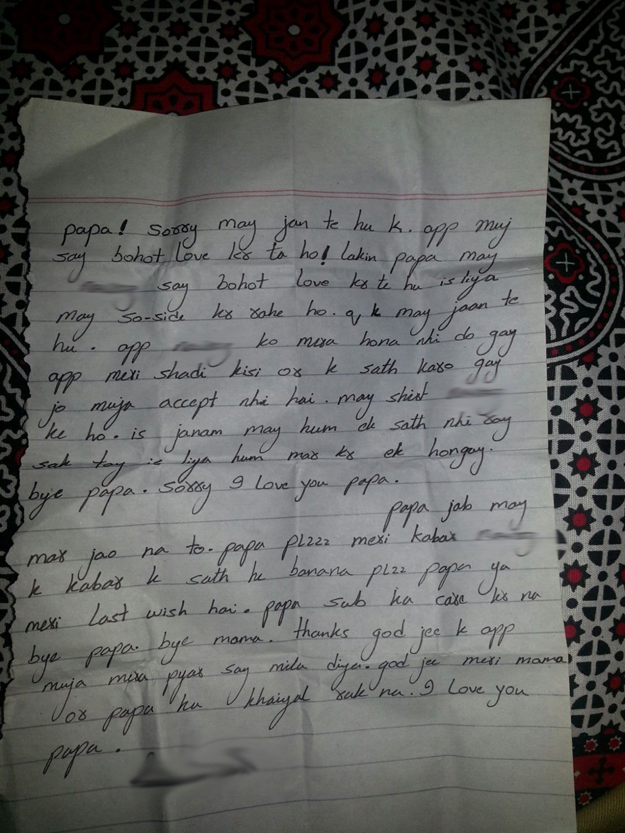 papa! Sorry may jan te hu k. app muj
say bohot love kr ta ho! lakin papa may
say bohot love kr te hu is liya
may so-side kr rahe ho. q k may jaan te
hu. app ko mera hona nhi do gay
app meri shadi kisi or k sath karo gay
jo muja accept nhi hai. may shirf
ke ho. is janam may hum ek sath nhi ray
sak tay is liya hum mar kr ek hongay.
bye papa. Sorry I love you papa.
papa jab may
mar jao na to. papa plzzz meri kabar
k kabar k sath he banana plzz papa ya
meri Last wish hai. papa sub ka care kr na
bye papa. bye mama. thanks god jee k app
muja mira pyar say mila diya. god jee meri mama
or papa ka khaiyal rak na. I love you
papa.